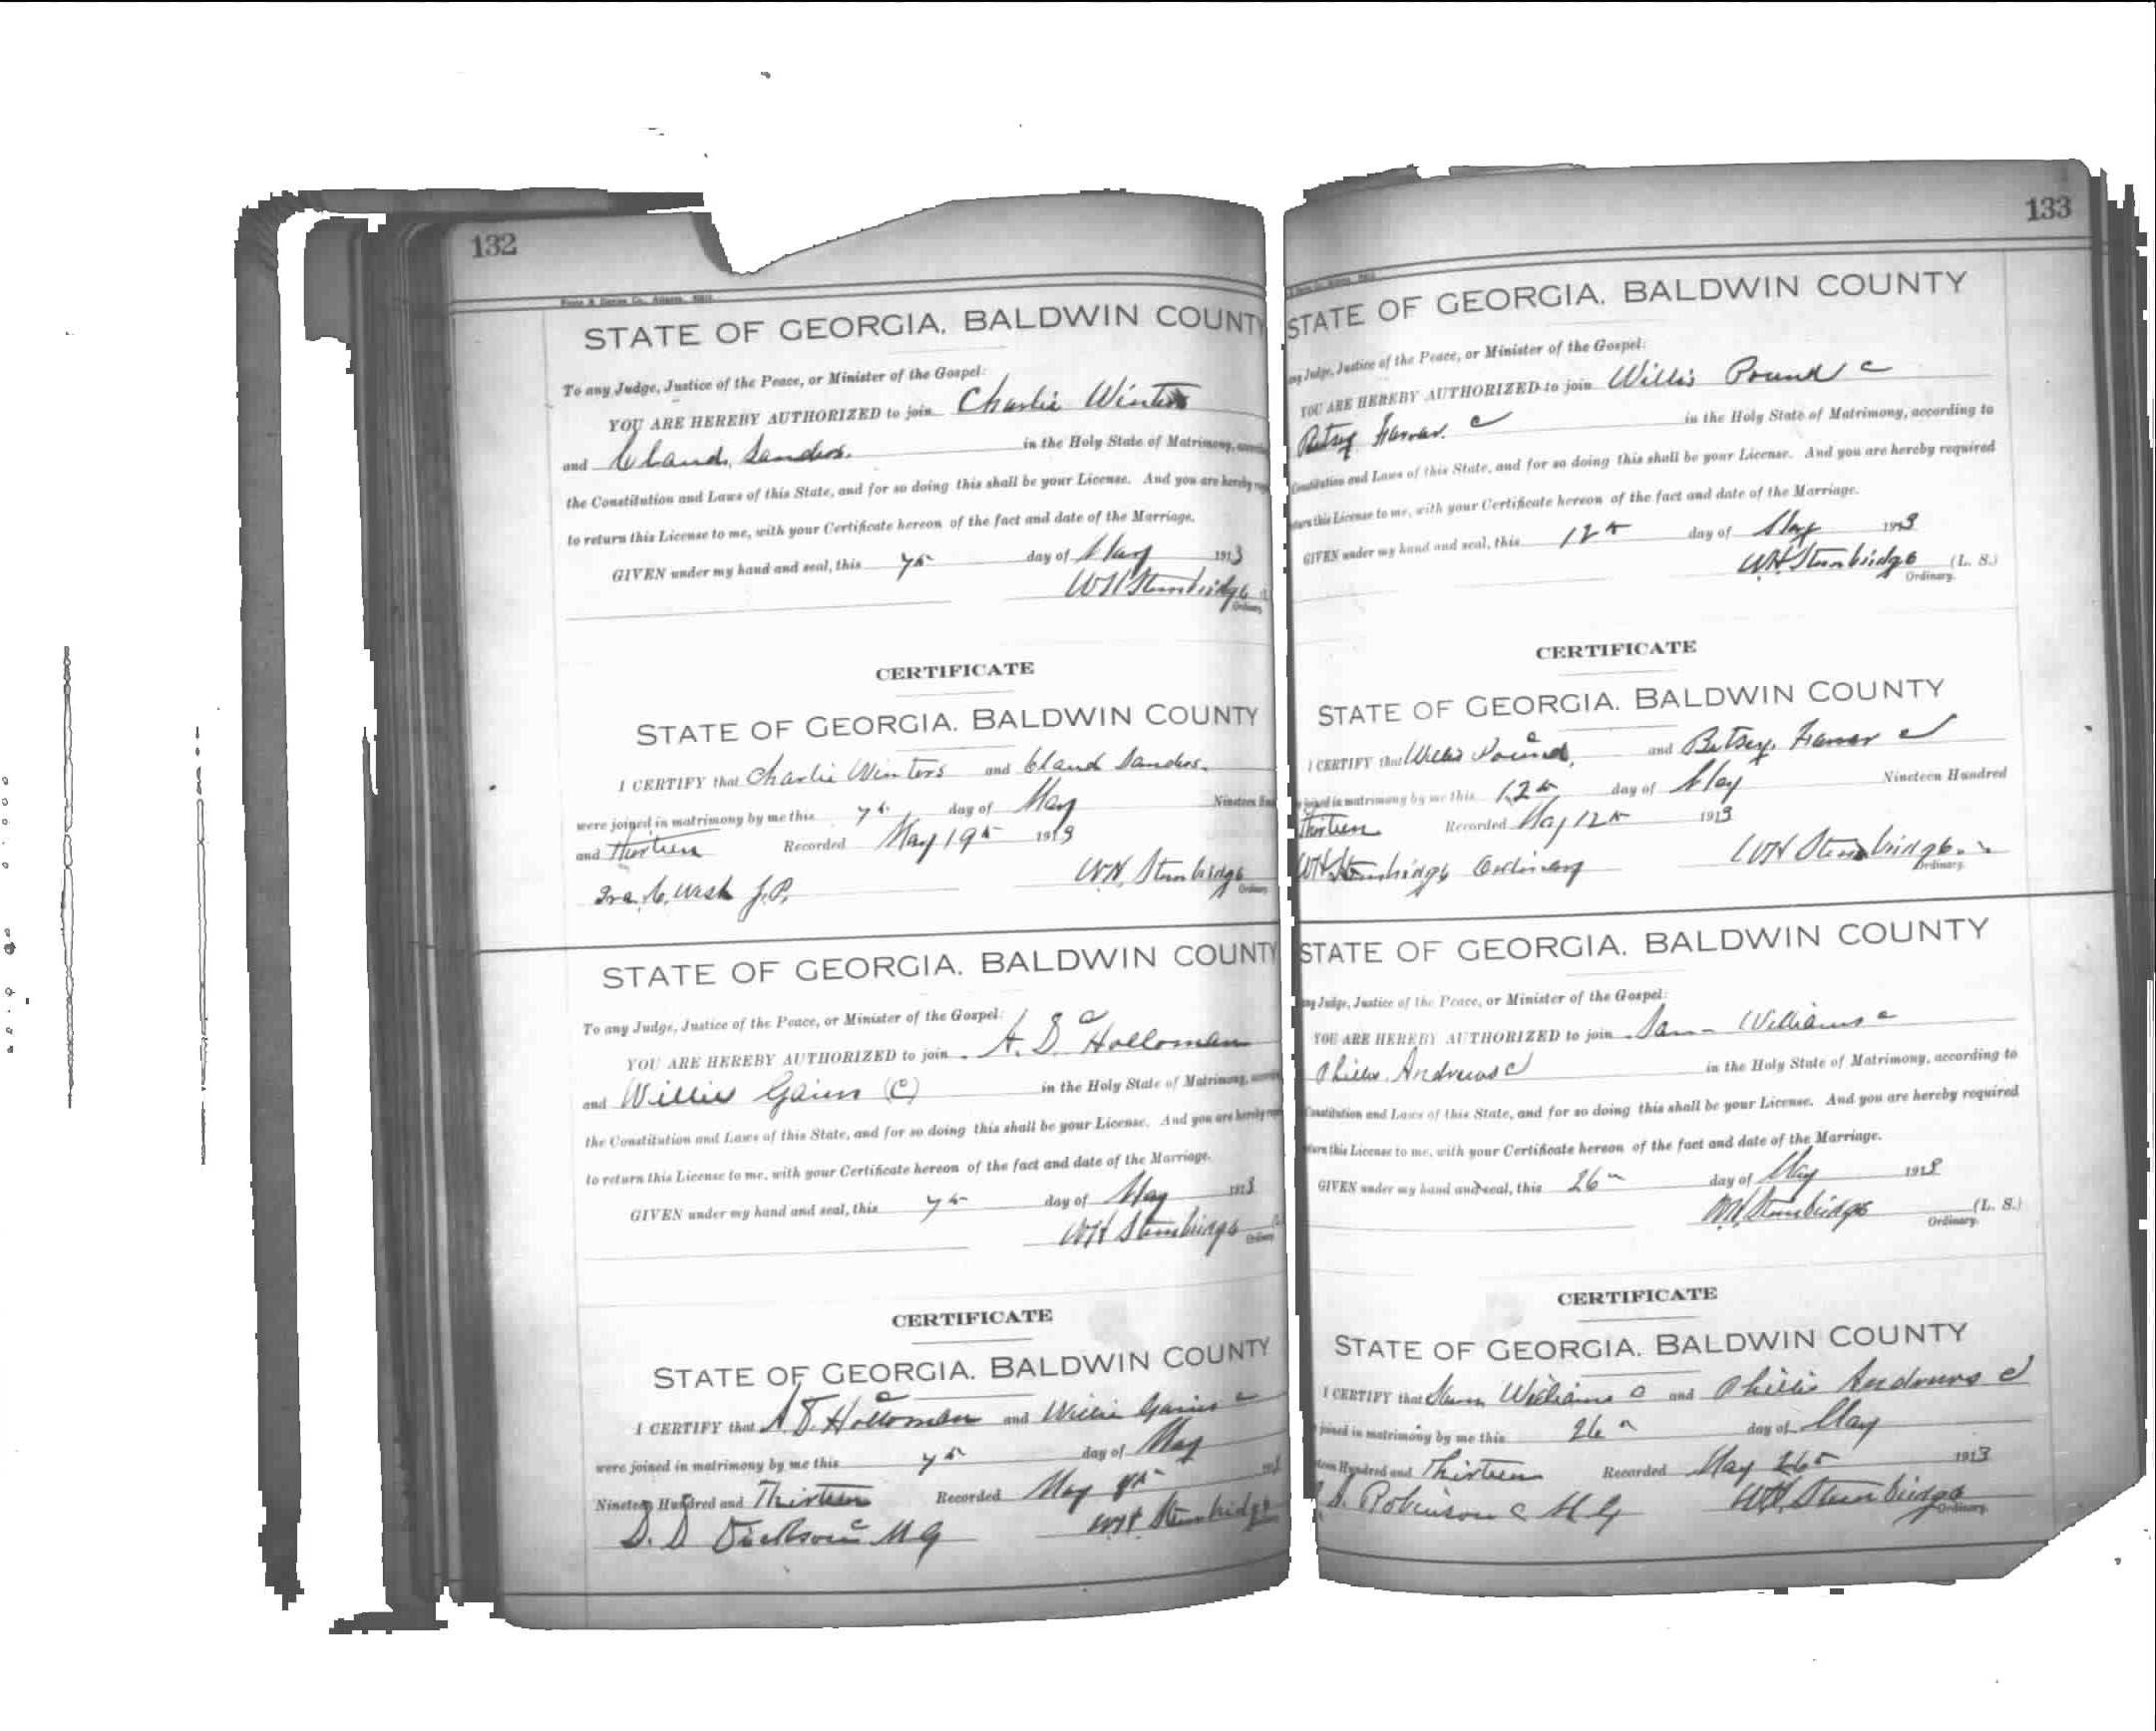 132
STATE OF GEORGIA, BALDWIN COUNTY
To any Judge, Justice of the Peace, or Minister of the Gospel:
YOU ARE HEREBY AUTHORIZED to join Charlie Winters
and Claud Sanders. in the Holy State of Matrimony,
the Constitution and Laws of this State, and for so doing this shall be your License. And you are hereby
to return this License to me, with your Certificate hereon of the fact and date of the Marriage.
GIVEN under my hand and seal, this 7th day of May 1913
WH Stembridge
Ordinary
CERTIFICATE
STATE OF GEORGIA. BALDWIN COUNTY
I CERTIFY that Charlie Winters and Claud Sanders.
were joined in matrimony by me this 7th day of May Nineteen
and Thirteen Recorded May 19th 1913
WH. Stembridge
Ordinary
Ira. C. West J.P.
STATE OF GEORGIA. BALDWIN COUNTY
To any Judge, Justice of the Peace, or Minister of the Gospel:
YOU ARE HEREBY AUTHORIZED to join Holloman c
and Willie Gaines (C) in the Holy State of Matrimony,
the Constitution and Laws of this State, and for so doing this shall be your License. And you are hereby
to return this License to me, with your Certificate hereon of the fact and date of the Marriage.
GIVEN under my hand and seal, this 7th day of May 1913
WH Stembridge
Ordinary
CERTIFICATE
STATE OF GEORGIA. BALDWIN COUNTY
I CERTIFY that Holloman c and Willie Gaines c
were joined in matrimony by me this 7th day of May
Nineteen Hundred and Thirteen Recorded May
D. D Dickson c MG WH Stembridge
133
STATE OF GEORGIA. BALDWIN COUNTY
any Judge, Justice of the Peace, or Minister of the Gospel:
YOU ARE HEREBY AUTHORIZED to join Willis Pound c
Betsey c in the Holy State of Matrimony, according to
Constitution and Laws of this State, and for so doing this shall be your License. And you are hereby required
return this License to me, with your Certificate hereon of the fact and date of the Marriage.
GIVEN under my hand and seal, this 12th day of May 1913
WH Stembridge (L. S.)
Ordinary.
CERTIFICATE
STATE OF GEORGIA. BALDWIN COUNTY
I CERTIFY that Willis Pound c and Betsey c
joined in matrimony by me this 12th day of May Nineteen Hundred
Thirteen Recorded May 12th 1913
WH Stembridge Ordinary WH Stembridge
Ordinary.
STATE OF GEORGIA. BALDWIN COUNTY
any Judge, Justice of the Peace, or Minister of the Gospel:
YOU ARE HEREBY AUTHORIZED to join Sam Williams c
Phillis Andrews c in the Holy State of Matrimony, according to
Constitution and Laws of this State, and for so doing this shall be your License. And you are hereby required
return this License to me, with your Certificate hereon of the fact and date of the Marriage.
GIVEN under my hand and seal, this 26th day of May 1913
WH Stembridge (L. S.)
Ordinary.
CERTIFICATE
STATE OF GEORGIA. BALDWIN COUNTY
I CERTIFY that Sam Williams c and Phillis Andrews c
joined in matrimony by me this 26th day of May
Hundred and Thirteen Recorded May 26th 1913
Robinson c MG WH. Stembridge
Ordinary.